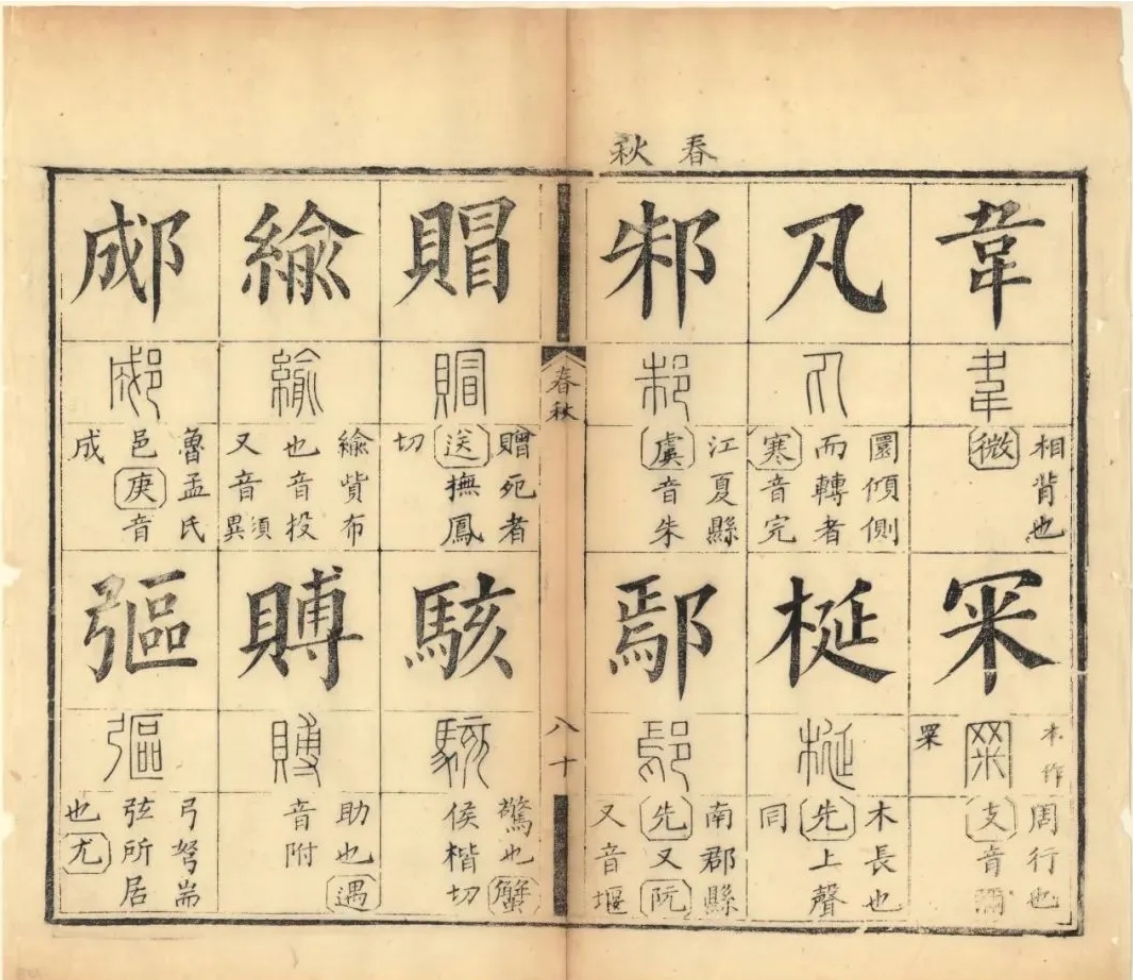 春秋
韋
相背也
微
冞
本作
周行也
支音彌
丸
圜傾側
而轉者
寒音完
梴
木長也
先上聲
同
邾
江夏縣
虞音朱
鄢
南郡縣
先又阮
又音堰
春秋
八十
賵
贈死者
送撫鳳
切
駭
驚也蟹
侯楷切
緰
緰貲布
也音投
又音須異
賻
助也遇
音附
郕
魯孟氏
邑庚音
成
彄
弓弩耑
弦所居
也尤